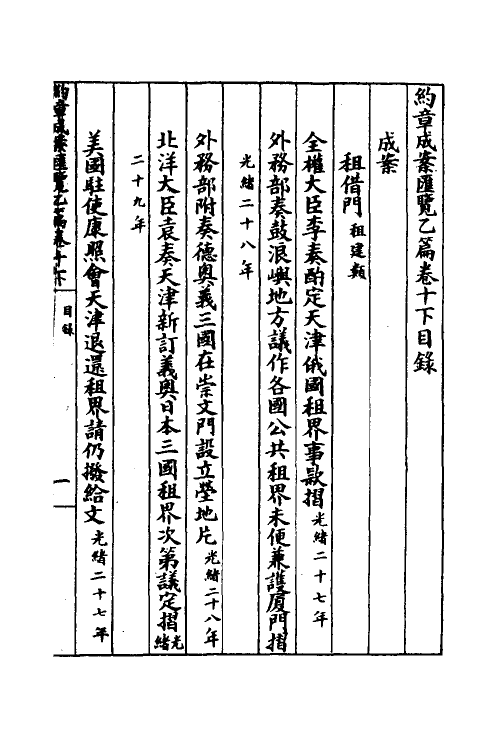 約章成案匯覽乙篇卷十下目錄
成案
租借門租建類
全權大臣李奏酌定天津俄國租界事款摺光緒二十七年
外務部奏鼓浪嶼地方議作各國公共租界未便兼護厦門摺
光緒二十八年
外務部附奏德奧義三國在崇文門設立營地片光緒二十八年
北洋大臣袁奏天津新訂義奧日本三國租界次第議定摺光緒
二十九年
美國駐使康照會天津退還租界請仍撥給文光緒二十七年
約章成案匯覽乙篇卷十下
目錄
一